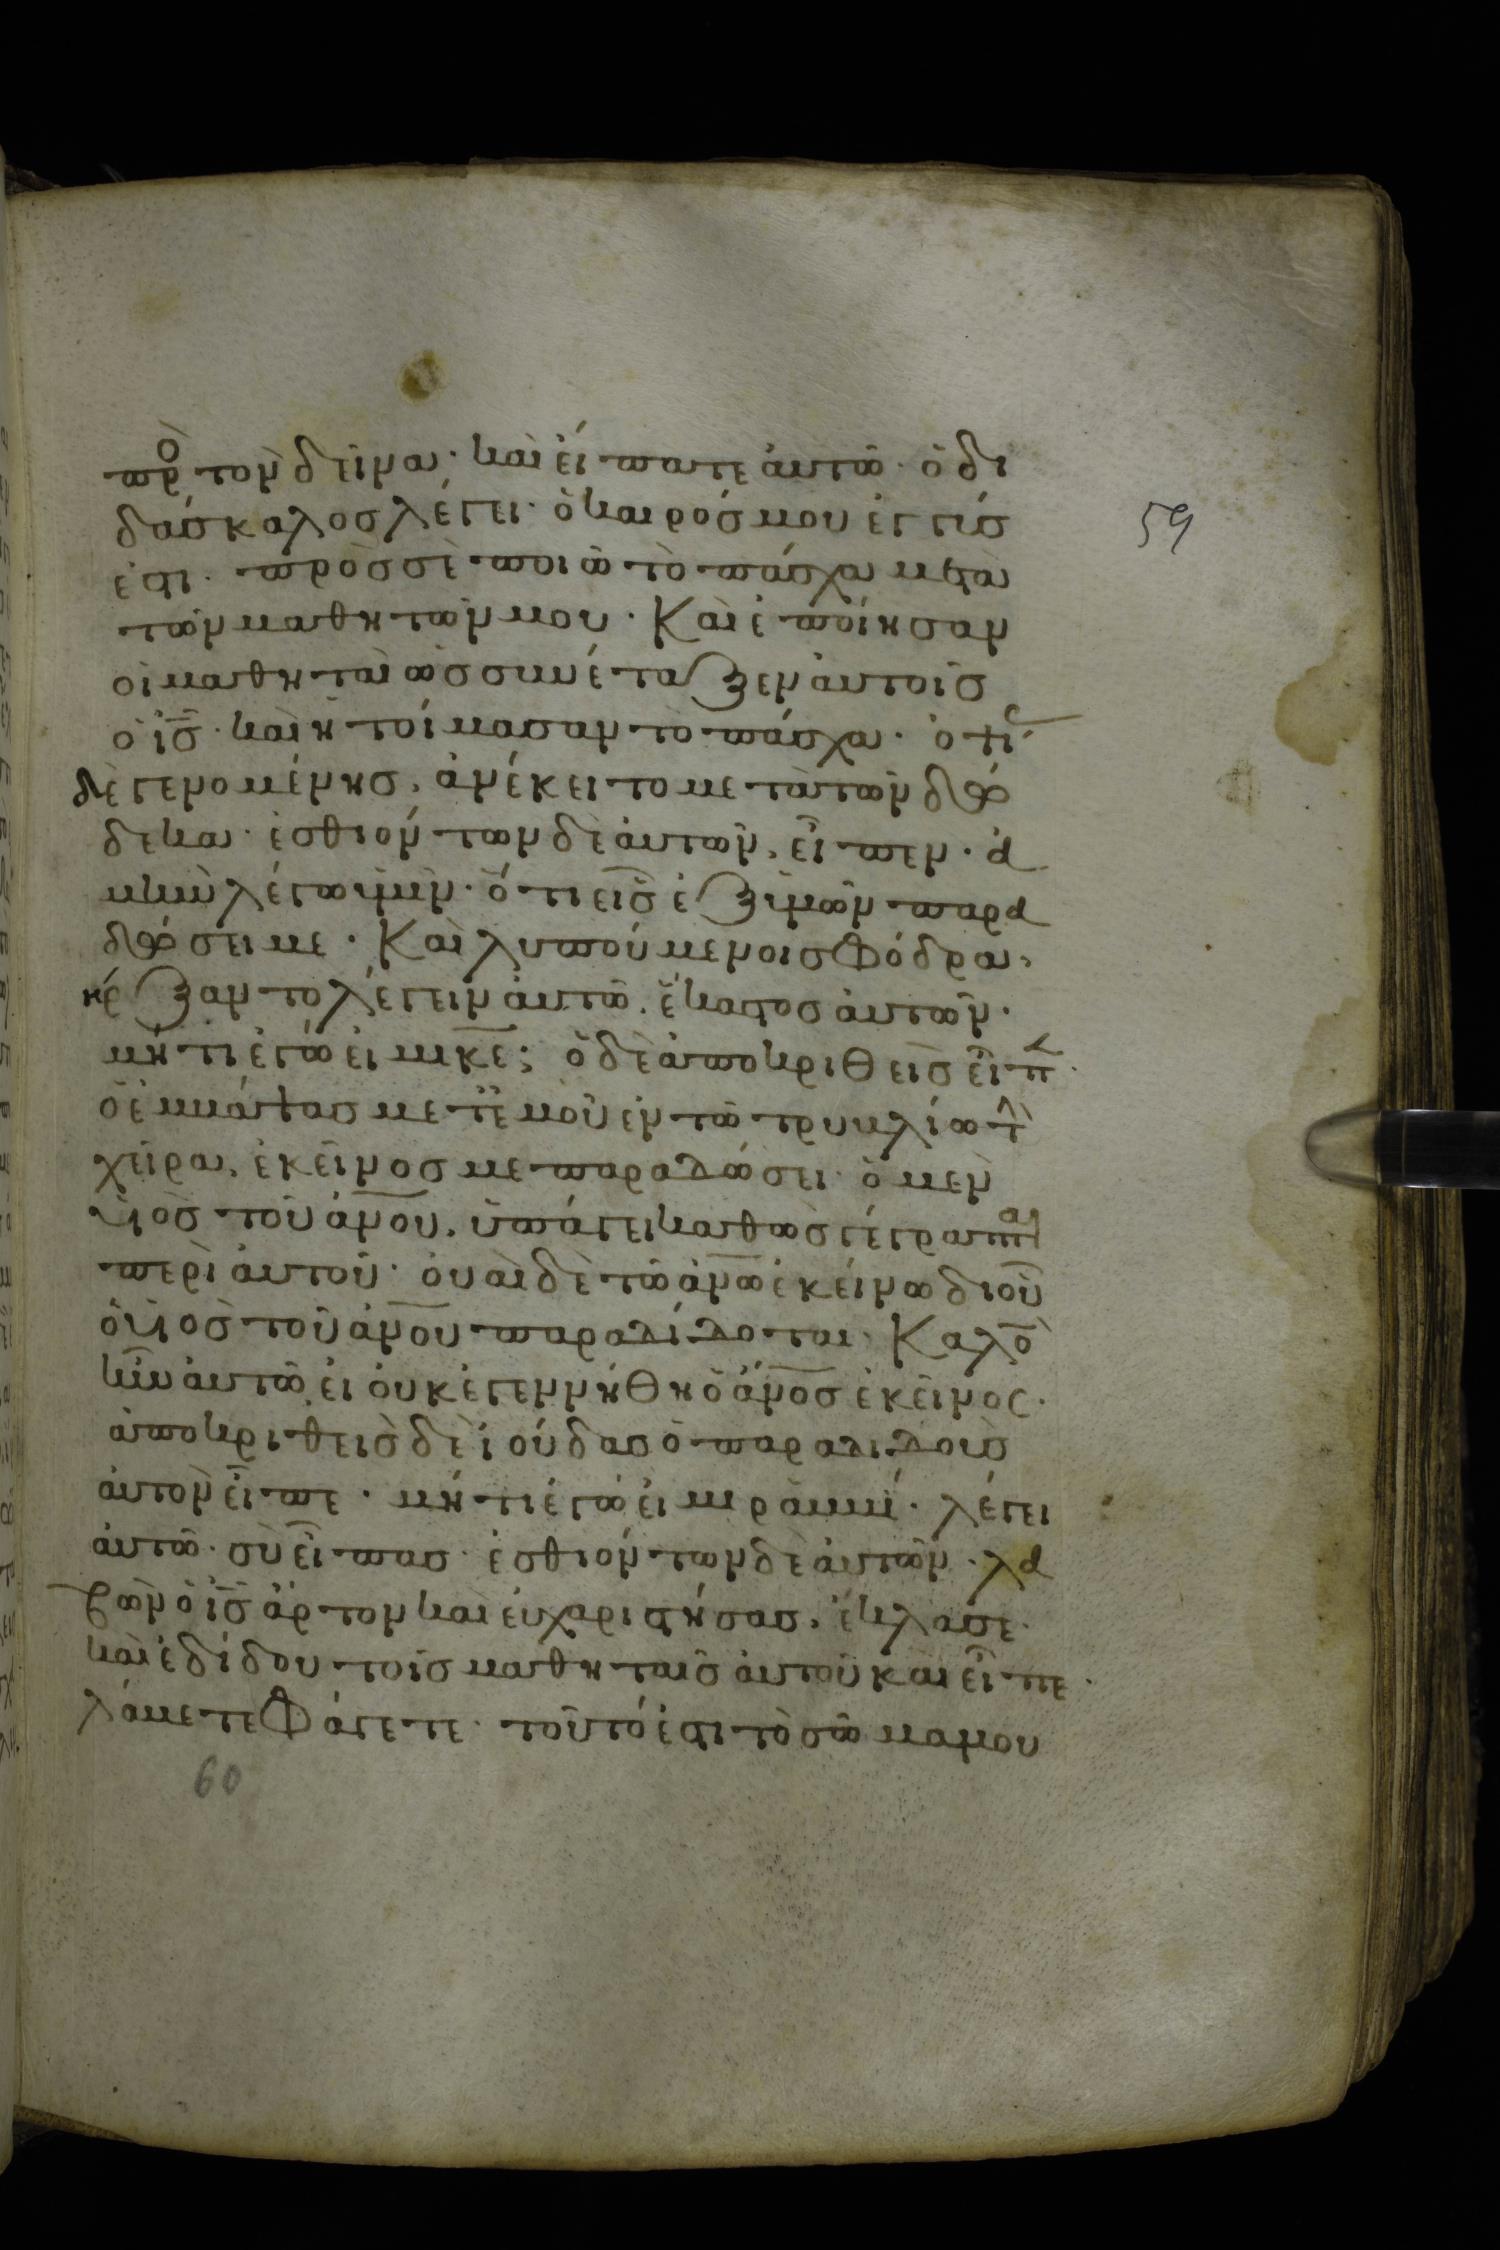 πρὸ τὸν δεῖνα· καὶ εἴπατε ἀυτῶ· ὁ δι
δάσκαλος λέγει· ὁ καιρός μου ἐγγύς
ἐστι· πρὸς σὲ ποιῶ τὸ πάσχα μετὰ
τῶν μαθητῶν μου· Καὶ ἐποίησαν
οἱ μαθηταὶ ὡς συνέταξεν ἀυτοῖς
ὁ ῑς̄· καὶ ἡτοίμασαν τὸ πάσχα· ὀψί
δὲ γενομένης, ἀνέκειτο μετὰ τῶν δώ
δεκα· ἐσθιόντων δὲ ἀυτῶν, εἶπεν· ἀ
μὴν λέγω ὑμῖν· ὅτι εἷς ἐξ ὑμῶν παρα
δώσει με· Καὶ λυπούμενοι σφόδρα,
ἤρξαντο λέγειν ἀυτῶ, ἕκαστος ἀυτῶν·
μήτι ἐγώ εἰμι κ̄ε̄; ὁ δὲ ἀποκριθεὶς εἶπ·
ὁ ἐμβάψας μετ ἐμοῦ ἐν τῶ τρυβλίω τ̀
χεῖρα, ἐκεῖνος με παραδώσει· ὁ μὲν
υἱὸς τοῦ ἀν̄ου, ὑπάγει καθὼς γέγραπται
περὶ ἀυτοῦ· ὀυαὶ δὲ τῶ ἀν̄ω ἐκείνω δι οὗ
ὁ υἱὸς τοῦ ἀν̄ου παραδίδοται· Καλὸ
ἦν ἀυτῶ ἐι ὀυκ ἐγεννήθη ὁ ἄν̄ος ἐκεῖνος·
ἀποκριθεὶς δὲ ἰούδας ὁ παραδιδοὺς
ἀυτὸν εἶπε· μήτι ἐγώ εἰμι ῥαββί· λέγει
ἀυτῶ· σὺ εἶπας· ἐσθιόντων δὲ ἀυτῶν· λα
βὼν ὁ ῑς̄ ἄρτον καὶ ἐυχαριστήσας, ἔκλασε·
καὶ ἐδίδου τοῖς μαθηταῖς ἀυτοῦ καὶ εἶπε·
λάβετε φάγετε· τοῦτό ἐστι τὸ σῶμα μου
59
60